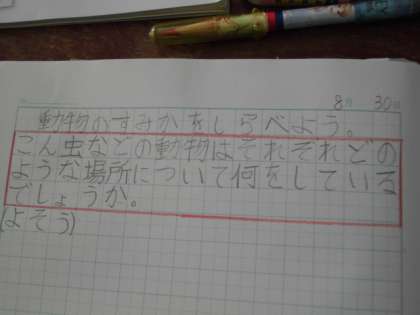 8月 30日
動物のすみかをしらべよう。
こん虫などの動物はそれぞれどの
ような場所について何をしている
でしょうか。
(よそう)